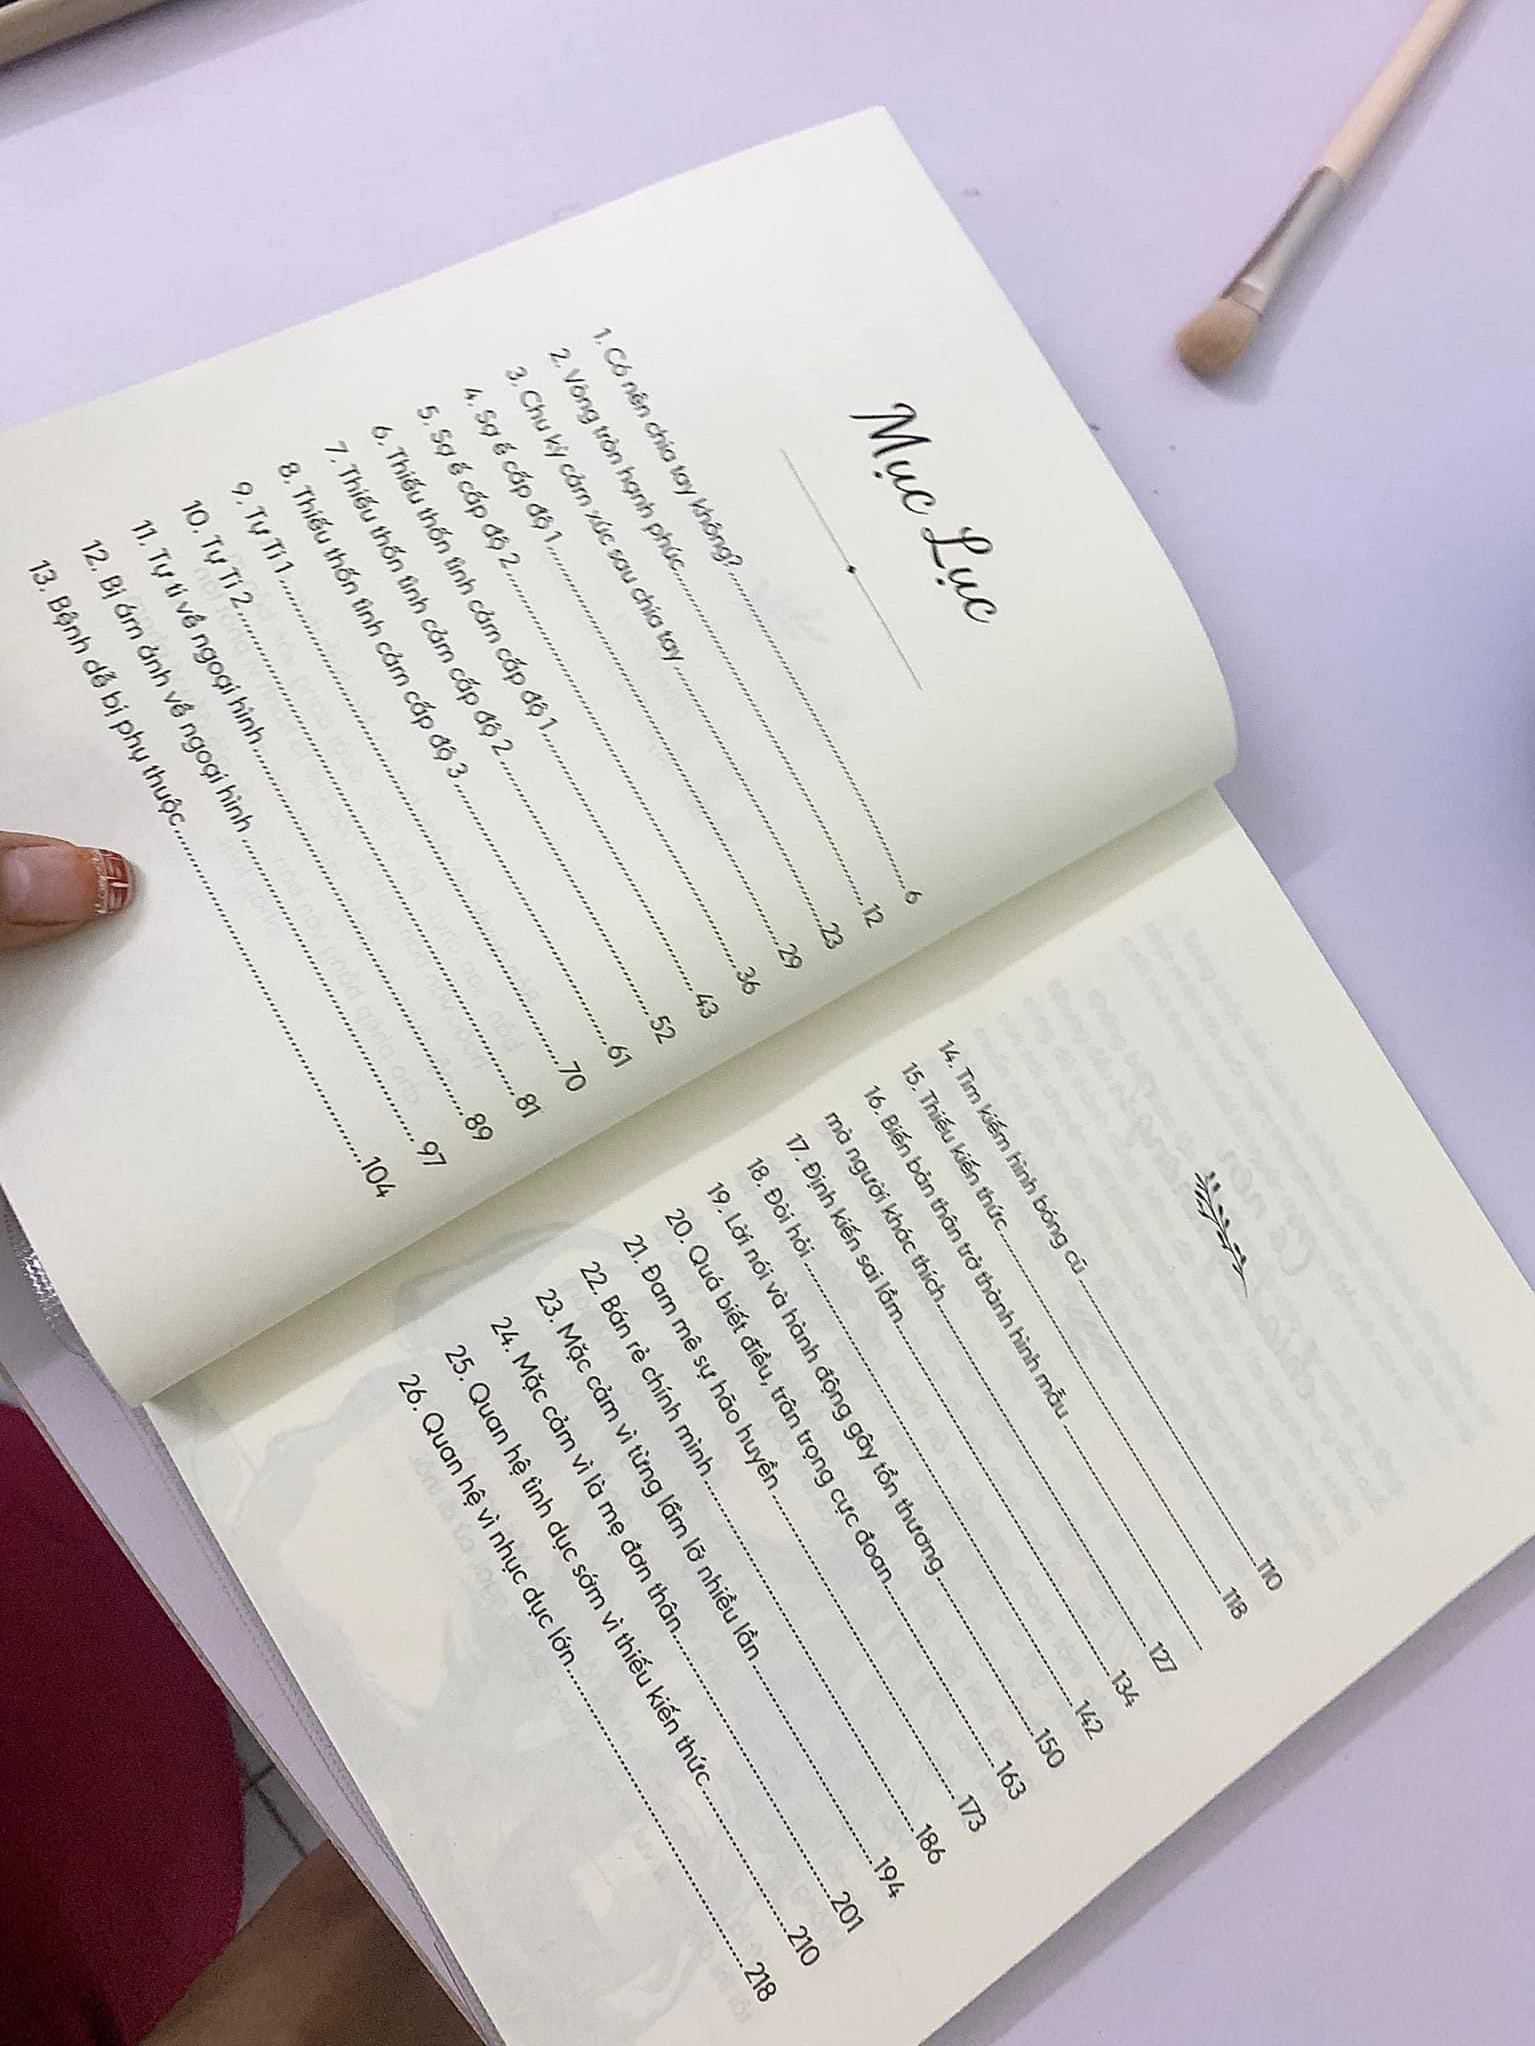 Mục Lục
1. Có nên chia tay không? 6
2. Vòng tròn hạnh phúc 12
3. Chu kỳ cảm xúc sau chia tay 23
4. Sợ ế cấp độ 1 29
5. Sợ ế cấp độ 2 36
6. Thiếu thốn tình cảm cấp độ 1 43
7. Thiếu thốn tình cảm cấp độ 2 52
8. Thiếu thốn tình cảm cấp độ 3 61
9. Tự Ti 1 70
10. Tự Ti 2 81
11. Tự ti về ngoại hình 89
12. Bị ám ảnh về ngoại hình 97
13. Bệnh dễ bị phụ thuộc 104
14. Tìm kiếm hình bóng cũ 110
15. Thiếu kiến thức 118
16. Biến bản thân trở thành hình mẫu
mà người khác thích 127
17. Định kiến sai lầm 134
18. Đòi hỏi 142
19. Lời nói và hành động gây tổn thương 150
20. Quá biết điều, trân trọng cực đoan 163
21. Đam mê sự hão huyền 173
22. Bán rẻ chính mình 186
23. Mặc cảm vì từng lầm lỡ nhiều lần 194
24. Mặc cảm vì là mẹ đơn thân 201
25. Quan hệ tình dục sớm vì thiếu kiến thức 210
26. Quan hệ vì nhục dục lớn 218